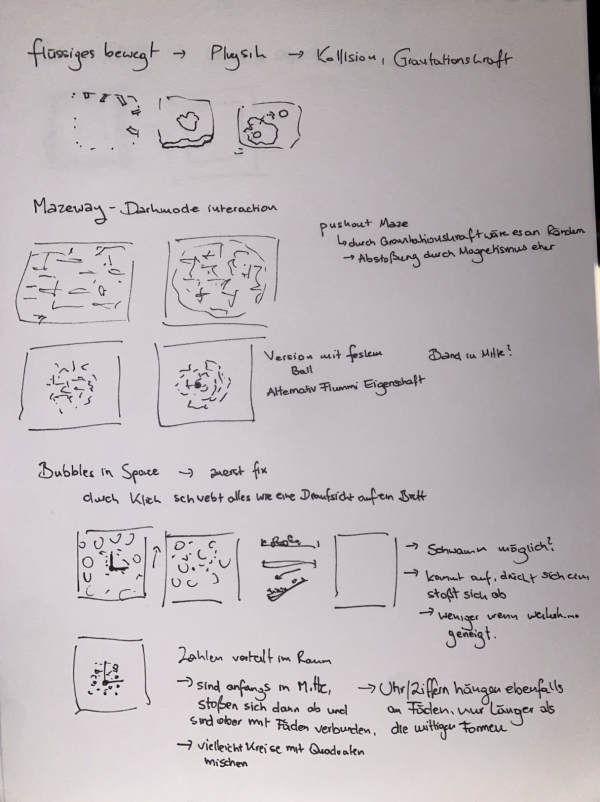 flüssiges bewegt → Plysih → Kollision, Gravitationskraft
Mazeway - Darkmode interaction
pushout Maze
↳ durch Gravitationskraft wäre es an Rändern
→ Abstoßung durch Magnetismus eher
Version mit festem
Ball
Alternativ Flummi Eigenschaft
Band in Mitte?
Bubbles in Space → zuerst fix
durch Klick schwebt alles wie eine Draufsicht auf ein Brett
→ Schwamm möglich?
→ kommt auf, drückt sich ein
stoßt sich ab
→ weniger wenn
geneigt.
Zahlen verteilt im Raum
→ sind anfangs in Mitte,
stoßen sich dann ab und
sind aber mit Fäden verbunden.
→ vielleicht Kreise mit Quadraten
mischen
→ Uhr/Ziffern hängen ebenfalls
an Fäden, nur Länger als
die Formen